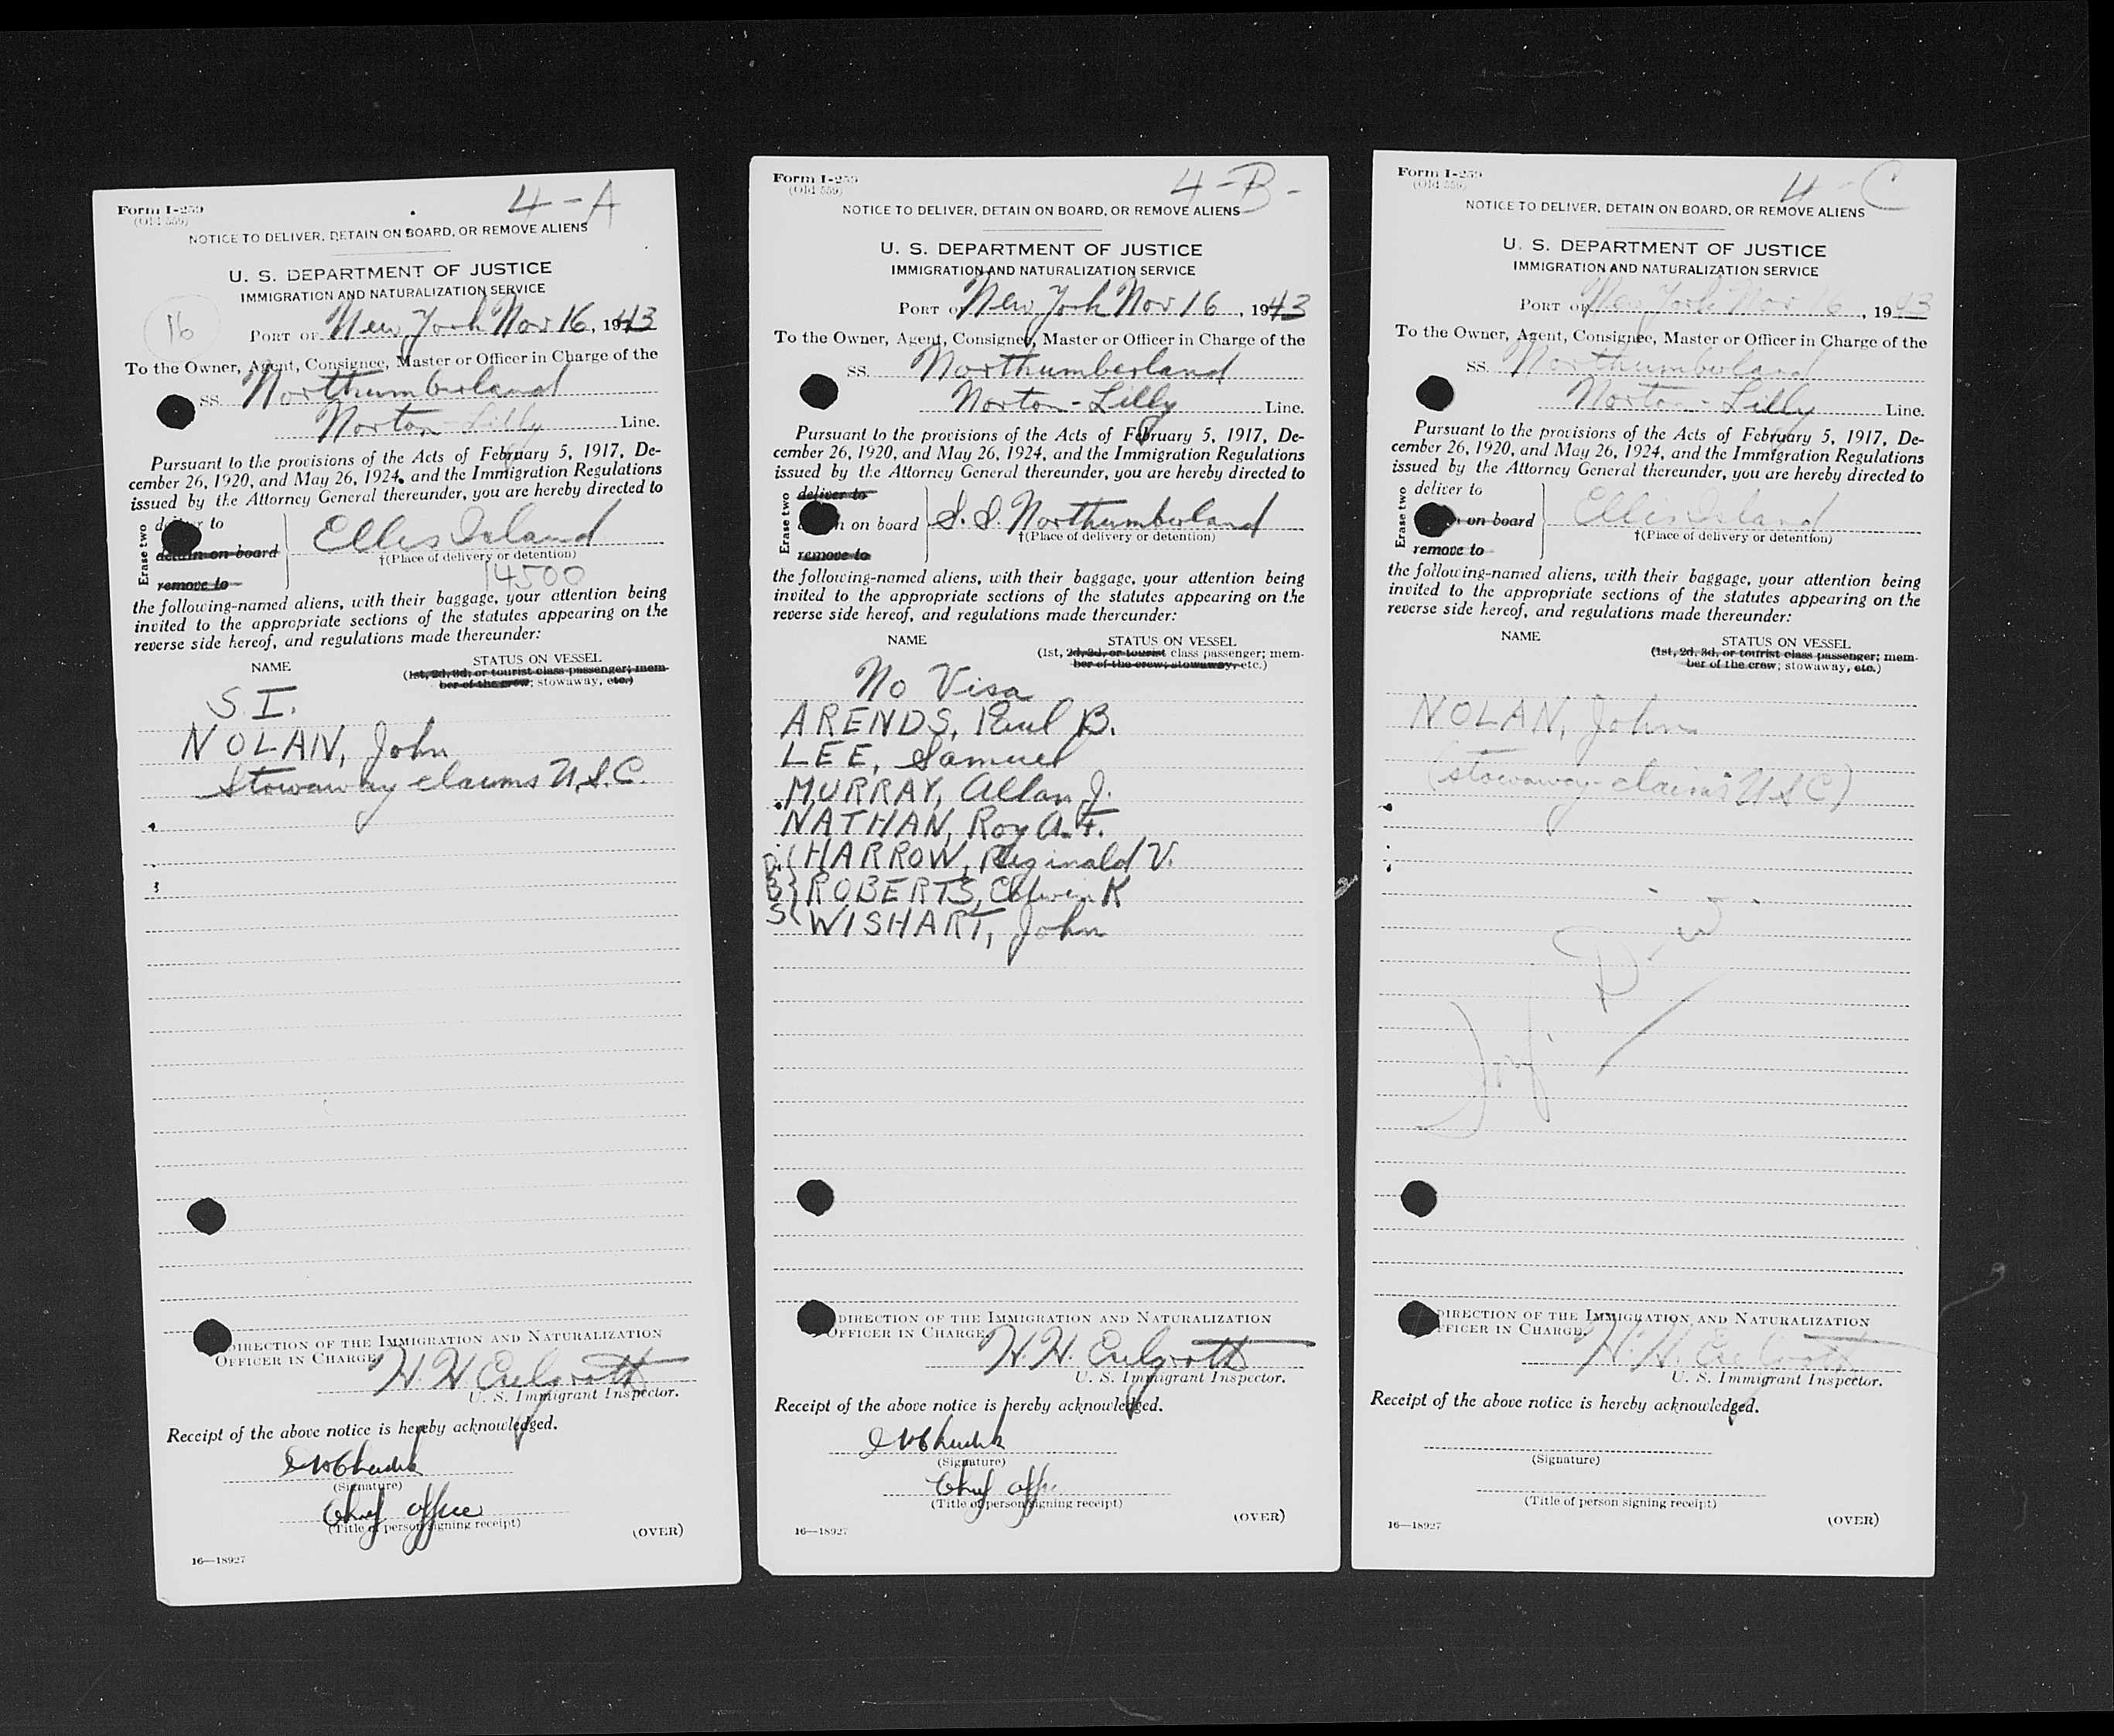 4-A
Form I-259
(Old 559)
NOTICE TO DELIVER, DETAIN ON BOARD, OR REMOVE ALIENS
U. S. DEPARTMENT OF JUSTICE
IMMIGRATION AND NATURALIZATION SERVICE
16
PORT OF New York Nov 16, 1943
To the Owner, Agent, Consignee, Master or Officer in Charge of the
SS. Northumberland
Norton-Lilly Line.
Pursuant to the provisions of the Acts of February 5, 1917, De-
cember 26, 1920, and May 26, 1924, and the Immigration Regulations
issued by the Attorney General thereunder, you are hereby directed to
Erase two
deliver to
detain on board
remove to
Ellis Island
†(Place of delivery or detention)
14500
the following-named aliens, with their baggage, your attention being
invited to the appropriate sections of the statutes appearing on the
reverse side hereof, and regulations made thereunder:
NAME
STATUS ON VESSEL
(1st, 2d, 3d, or tourist class passenger; mem-
ber of the crew; stowaway, etc.)
S.I.
NOLAN, John
Stowaway claims U.S.C.
DIRECTION OF THE IMMIGRATION AND NATURALIZATION
OFFICER IN CHARGE
H. H.
U. S. Immigrant Inspector.
Receipt of the above notice is hereby acknowledged.
(Signature)
Chief Officer
(Title of person signing receipt)
(OVER)
16—18927
4-B-
Form I-259
(Old 559)
NOTICE TO DELIVER, DETAIN ON BOARD, OR REMOVE ALIENS
U. S. DEPARTMENT OF JUSTICE
IMMIGRATION AND NATURALIZATION SERVICE
PORT OF New York Nov 16, 1943
To the Owner, Agent, Consignee, Master or Officer in Charge of the
SS. Northumberland
Norton-Lilly Line.
Pursuant to the provisions of the Acts of February 5, 1917, De-
cember 26, 1920, and May 26, 1924, and the Immigration Regulations
issued by the Attorney General thereunder, you are hereby directed to
Erase two
deliver to
n on board
remove to
S. S. Northumberland
†(Place of delivery or detention)
the following-named aliens, with their baggage, your attention being
invited to the appropriate sections of the statutes appearing on the
reverse side hereof, and regulations made thereunder:
NAME
STATUS ON VESSEL
(1st, 2d, 3d, or tourist class passenger; mem-
ber of the crew; stowaway, etc.)
No Visa
ARENDS, Paul B.
LEE, Samuel
MURRAY, Allan J.
NATHAN, Roy A. F.
D. HARROW, Reginald V.
B ROBERTS, Edwin K
S WISHART, John
DIRECTION OF THE IMMIGRATION AND NATURALIZATION
OFFICER IN CHARGE
H. H.
U. S. Immigrant Inspector.
Receipt of the above notice is hereby acknowledged.
(Signature)
Chief
(Title of person signing receipt)
(OVER)
16—18927
4-C
Form I-259
(Old 559)
NOTICE TO DELIVER, DETAIN ON BOARD, OR REMOVE ALIENS
U. S. DEPARTMENT OF JUSTICE
IMMIGRATION AND NATURALIZATION SERVICE
PORT OF New York Nov 16, 1943
To the Owner, Agent, Consignee, Master or Officer in Charge of the
SS. Northumberland
Norton-Lilly Line.
Pursuant to the provisions of the Acts of February 5, 1917, De-
cember 26, 1920, and May 26, 1924, and the Immigration Regulations
issued by the Attorney General thereunder, you are hereby directed to
Erase two
deliver to
on board
remove to
Ellis Island
†(Place of delivery or detention)
the following-named aliens, with their baggage, your attention being
invited to the appropriate sections of the statutes appearing on the
reverse side hereof, and regulations made thereunder:
NAME
STATUS ON VESSEL
(1st, 2d, 3d, or tourist class passenger; mem-
ber of the crew; stowaway, etc.)
NOLAN, John
(stowaway-claims USC)
DIRECTION OF THE IMMIGRATION AND NATURALIZATION
FFICER IN CHARGE
H. H.
U. S. Immigrant Inspector.
Receipt of the above notice is hereby acknowledged.
(Signature)
(Title of person signing receipt)
(OVER)
16—18927